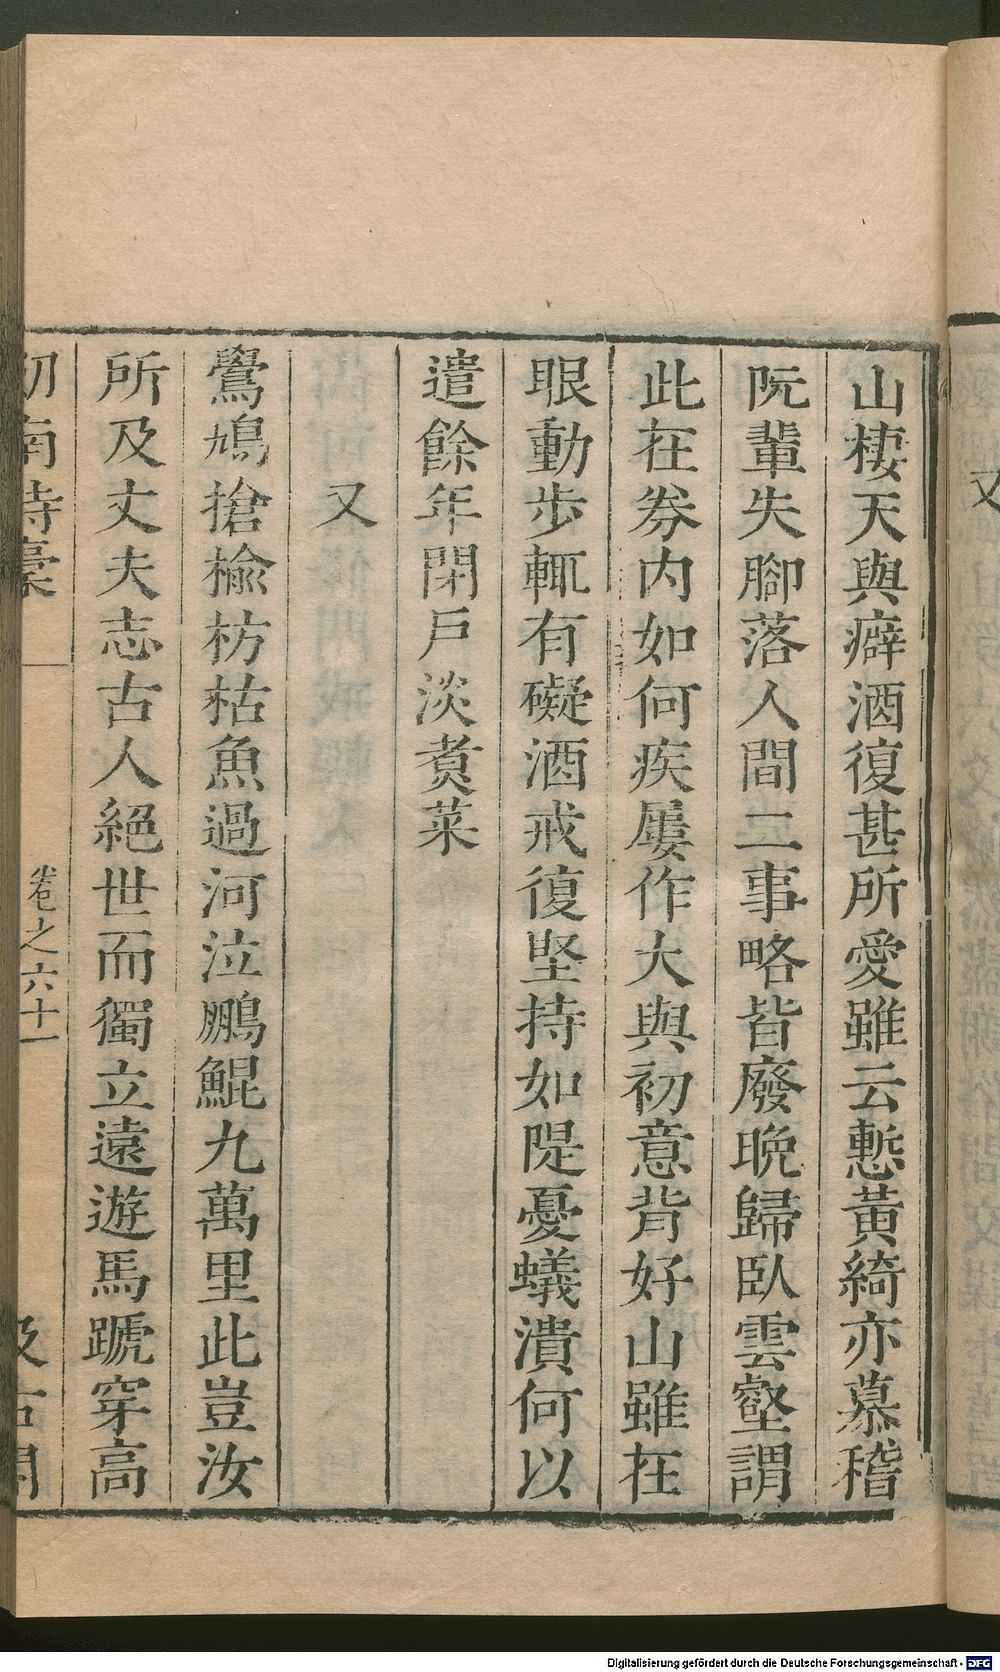 又
山棲天與癖酒復甚所愛雖云慙黃綺亦慕稽
阮輩失腳落人間二事略皆廢晚歸臥雲壑謂
此在劵内如何疾屢作大與初意背好山雖在
眼動步輒有礙酒戒復堅持如隄憂蟻潰何以
遣餘年閉戶淡煑菜
又
鷽鳩搶楡枋枯魚過河泣鵬鯤九萬里此豈汝
所及丈夫志古人絕世而獨立遠遊馬蹏穿高
劒南詩稾
卷之六十一
汲古閣
Digitalisierung gefördert durch die Deutsche Forschungsgemeinschaft - DFG